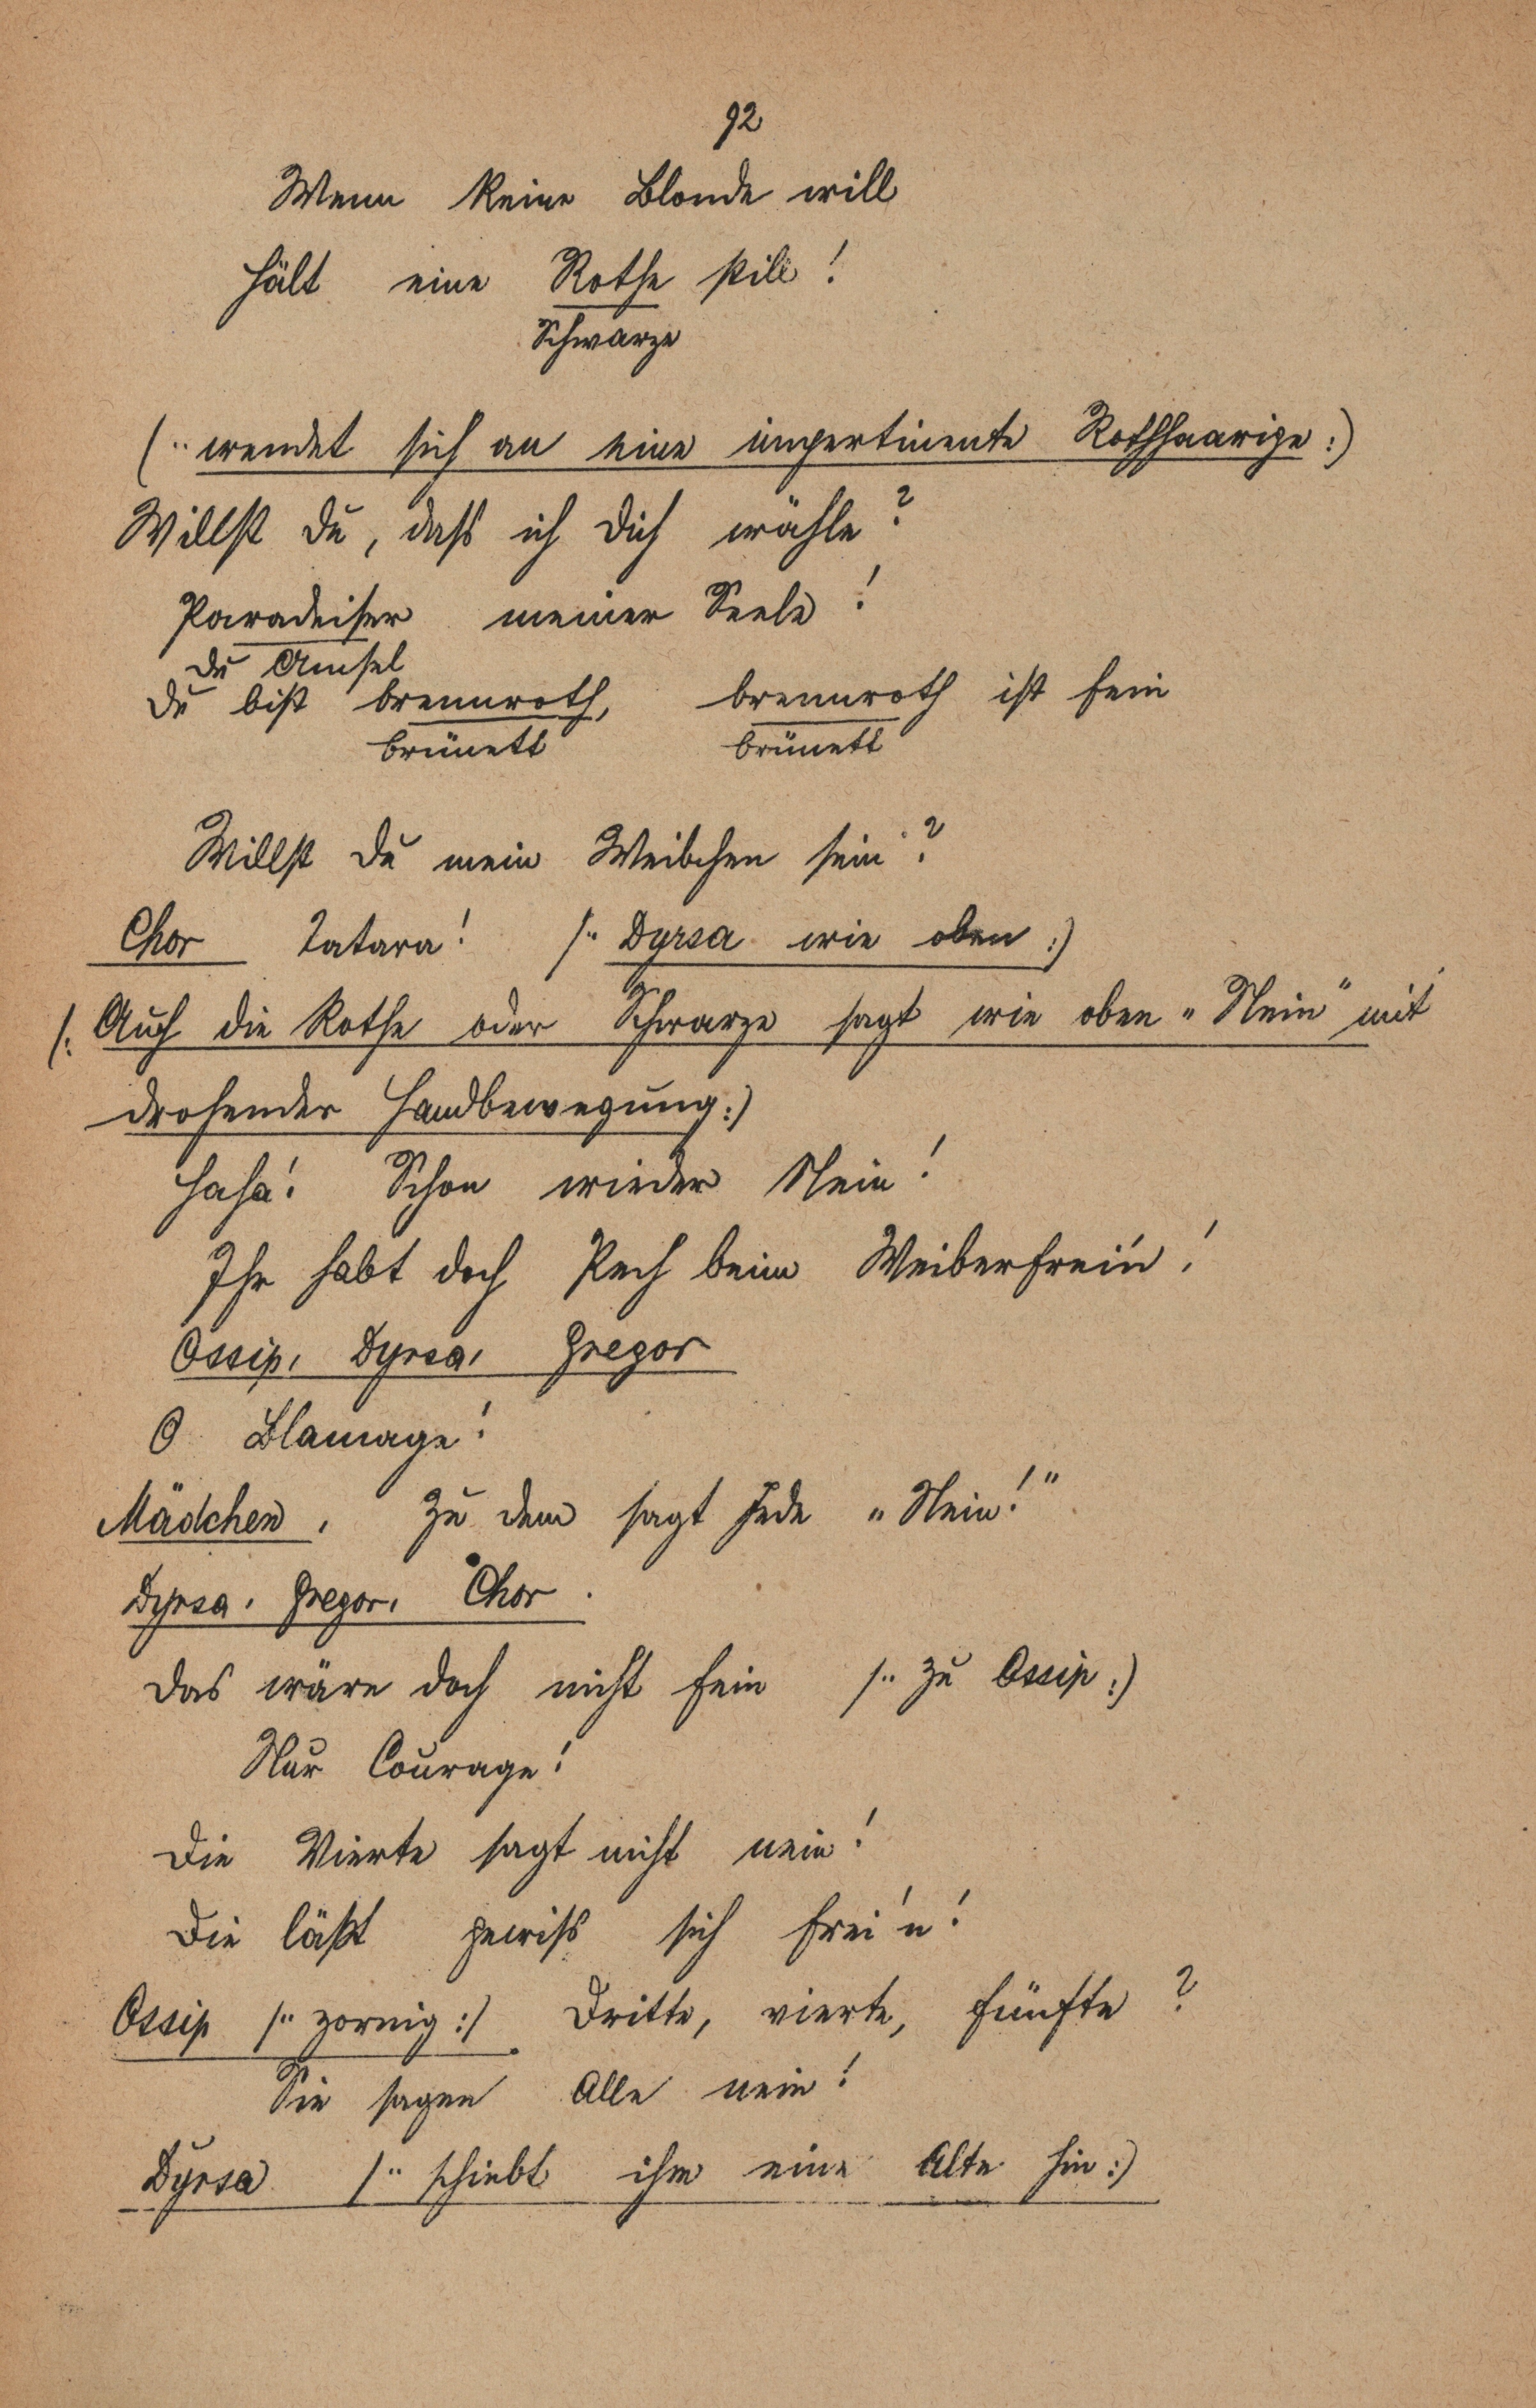 92
Wenn keine Blonde will
Hält eine Rothe still!
Schwarze
(:wendet sich an eine impertinente Rothhaarige:)
Willst du, dass ich dich wähle?
Paradeiser meiner Seele!
du Amsel
du bist brennroth, brennroth ist fein
brünett brünett
Willst du mein Weibchen sein?
Chor Tatara! /: Dyrsa wie oben:)
/: Auch die Rothe oder Schwarze sagt wie oben „Nein" mit
drohender Handbewegung:)
Haha! Schon wieder Nein!
Ihr habt doch Pech beim Weiberfrei'n!
Ossip, Dyrsa, Gregor
O Blamage!
Mädchen. Zu dem sagt Jede „Nein!"
Dyrsa, Gregor, Chor.
Das wäre doch nicht fein /: zu Ossip:)
Nur Courage!
Die Vierte sagt nicht nein!
Die läßt gewiss sich frei'n!
Ossip /: zornig:/ Dritte, vierte, fünfte?
Sie sagen Alle nein!
Dyrsa /: schiebt ihm eine Alte hin:)